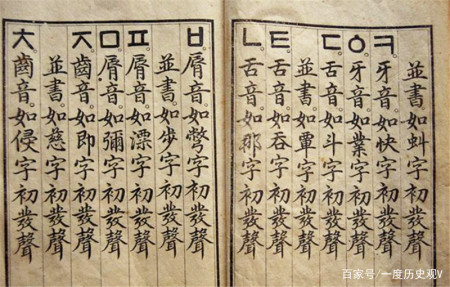 並書。如虯字初發聲
ㅋ牙音。如快字初發聲
ㆁ牙音。如業字初發聲
ㄷ舌音。如斗字初發聲
並書。如覃字初發聲
ㅌ舌音。如呑字初發聲
ㄴ舌音。如那字初發聲
ㅂ脣音。如彆字初發聲
並書。如步字初發聲
ㅍ脣音。如漂字初發聲
ㅁ脣音。如彌字初發聲
ㅈ齒音。如即字初發聲
並書。如慈字初發聲
ㅊ齒音。如侵字初發聲
百家号/一度历史观V